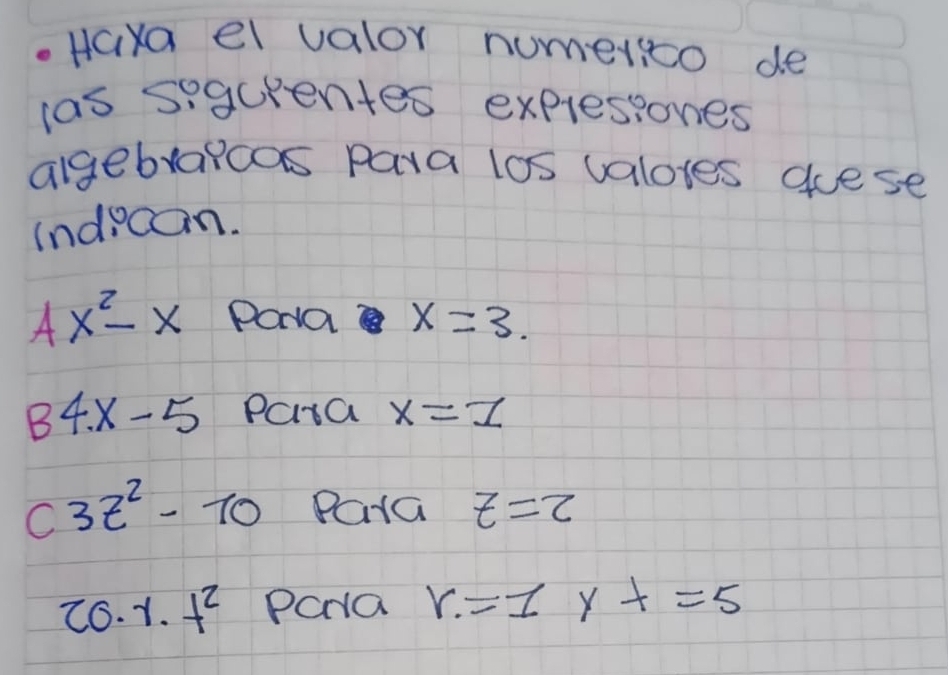 • Haya el valor numerico de
las siguientes expresiones
algebraicas para los valores que se
indican.
A x² - x para x = 3.
B 4.x - 5 para x = 1
C 3z² - 10 para z = 2
20. r. t² para r. = 1 y t = 5